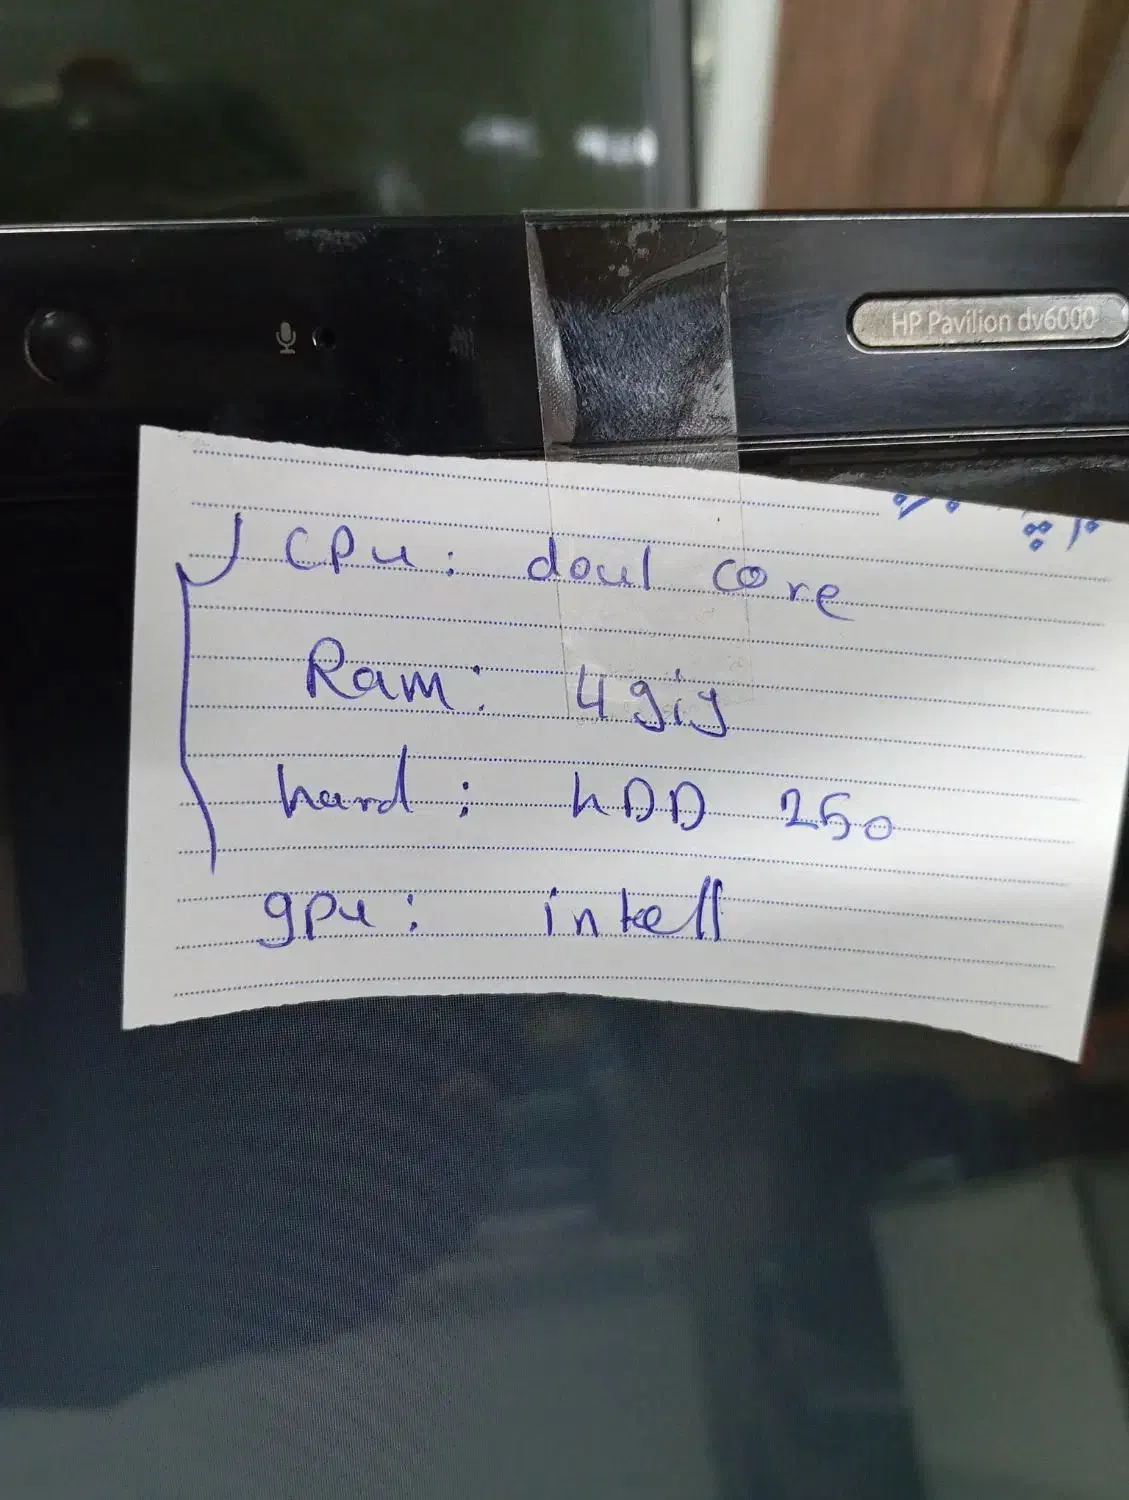 HP Pavilion dv6000
CPu: doul core
Ram: 4 gig
hard: hDD 250
gpu: intell